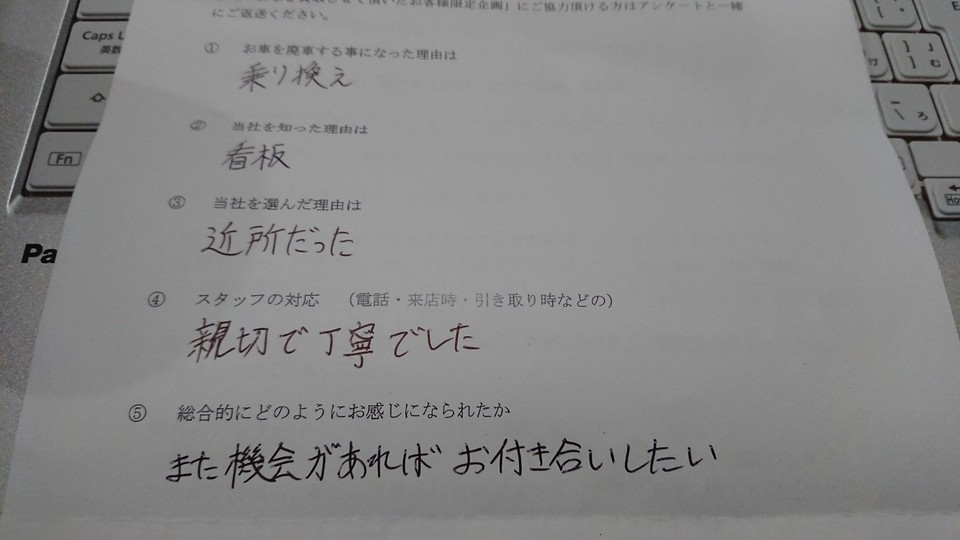 させて頂いたお客様限定企画」にご協力頂ける方はアンケートと一緒
にご返送ください。
① お車を廃車する事になった理由は
乗り換え
② 当社を知った理由は
看板
③ 当社を選んだ理由は
近所だった
④ スタッフの対応 （電話・来店時・引き取り時などの）
親切で丁寧でした
⑤ 総合的にどのようにお感じになられたか
また機会があればお付き合いしたい
Caps L
英数
Fn
Pa
] 」 } む
\ ろ